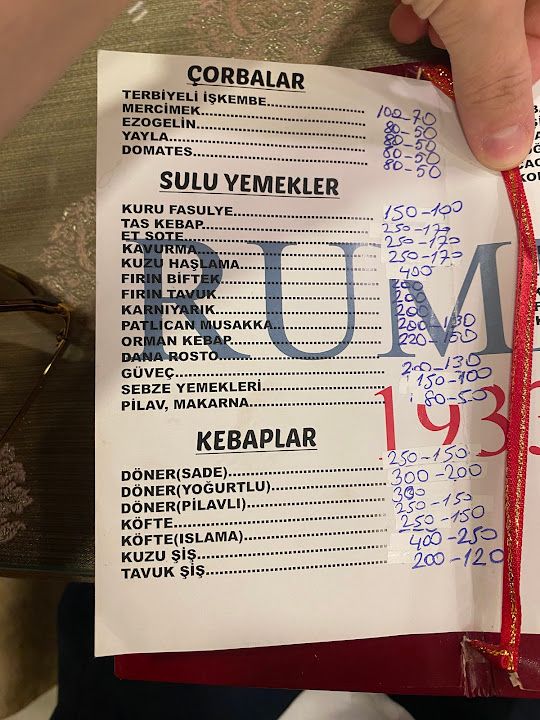 ÇORBALAR
TERBİYELİ İŞKEMBE 100-70
MERCİMEK 80-50
EZOGELİN 80-50
YAYLA 80-50
DOMATES 80-50
SULU YEMEKLER
KURU FASULYE 150-100
TAS KEBAP 250-170
ET SOTE 250-170
KAVURMA 250-170
KUZU HAŞLAMA 400
FIRIN BİFTEK
FIRIN TAVUK 200
KARNIYARIK 200
PATLICAN MUSAKKA 200-130
ORMAN KEBAP 220-150
DANA ROSTO
GÜVEÇ 200-130
SEBZE YEMEKLERİ 150-100
PİLAV, MAKARNA 80-50
RUM
1933
KEBAPLAR
DÖNER(SADE) 250-150
DÖNER(YOĞURTLU) 300-200
DÖNER(PİLAVLI) 300
KÖFTE 250-150
KÖFTE(ISLAMA) 250-150
KUZU ŞİŞ 400-250
TAVUK ŞİŞ 200-120